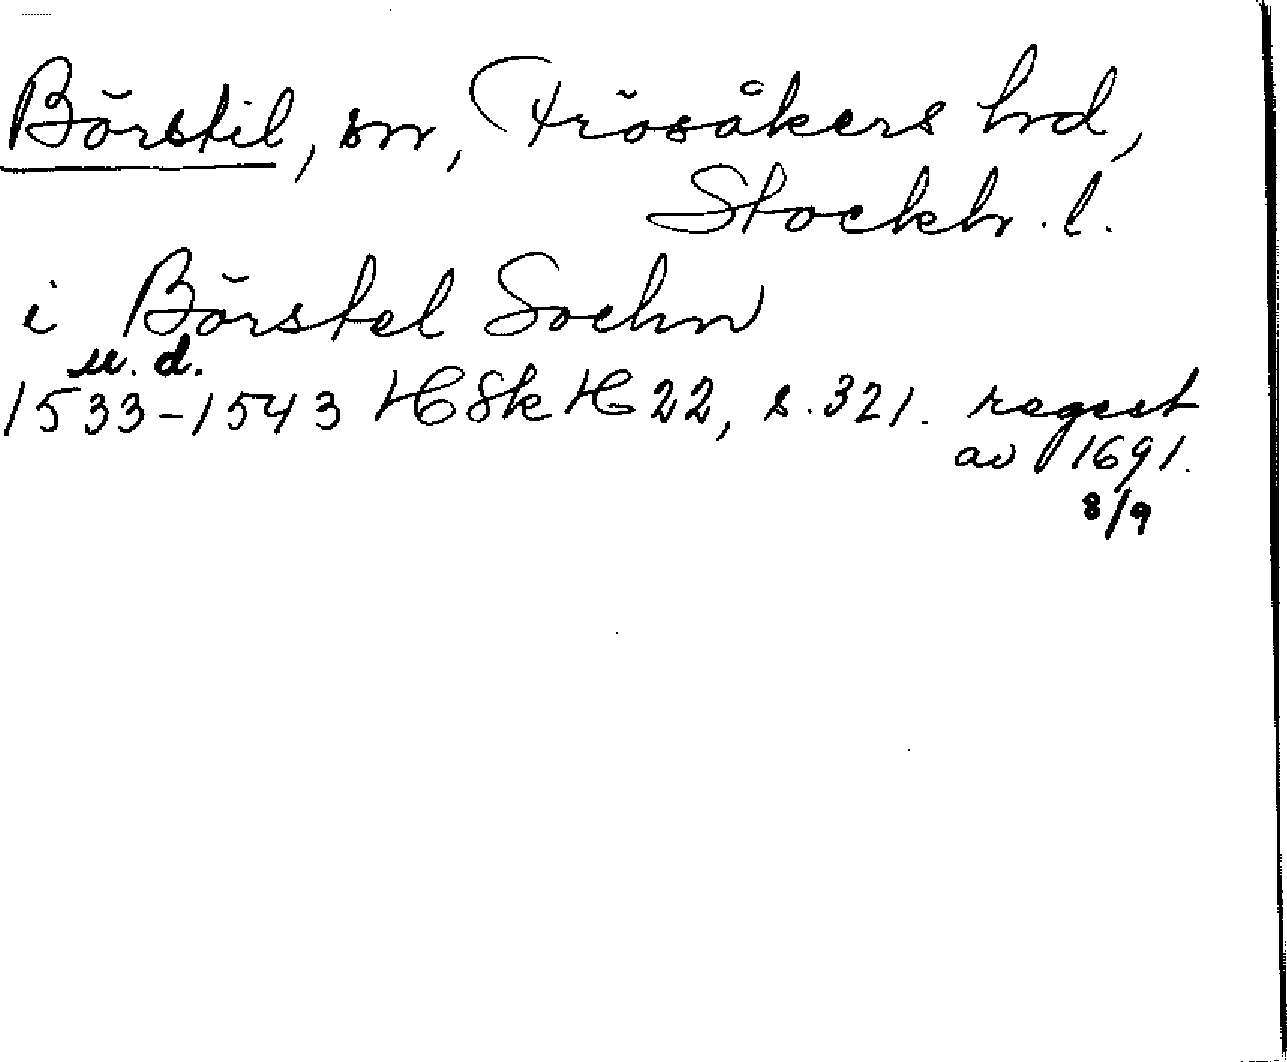 Börstil, sn, Frösåkers hrd,
Stockh. l.
i Börstel Sochn
u. d.
1533-1543 HSk H 22, s. 321. regest
av 1691.
8/9